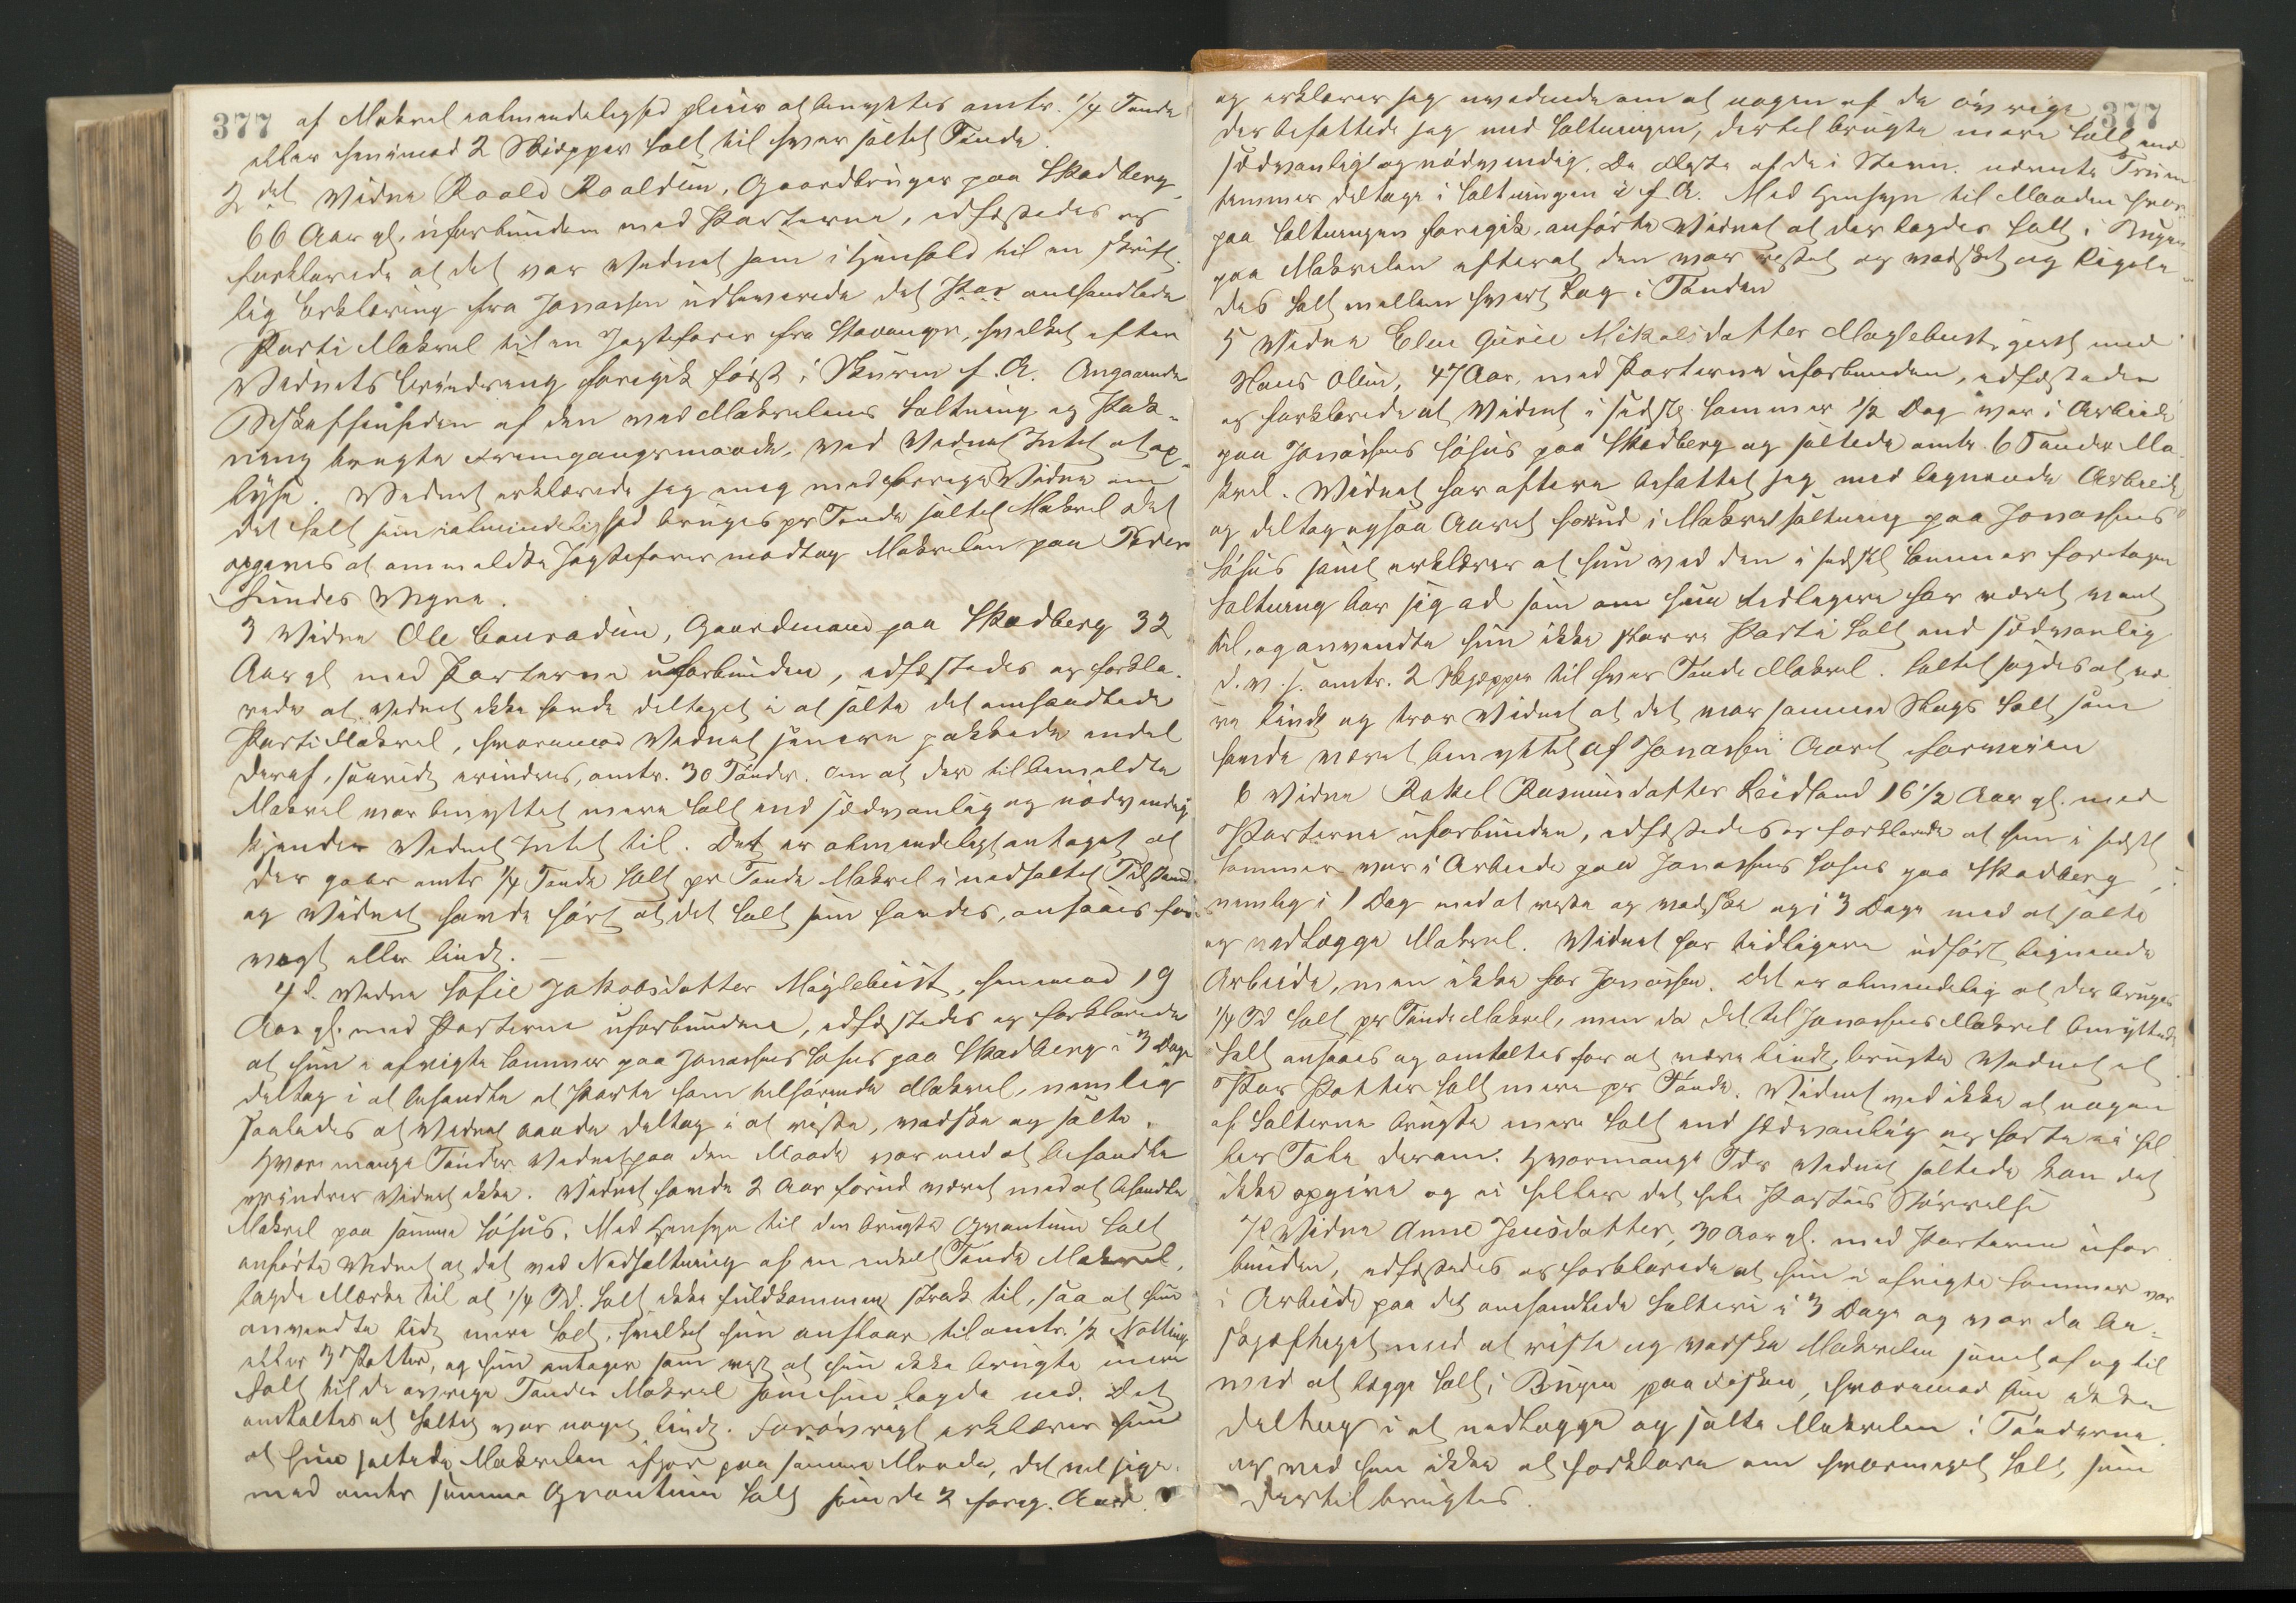 377
af Makrel ialmindelighed pleier at benyttes omtr. 1/4 Tønde
eller henimod 2 Skjepper Salt til hver saltet Tønde.
2det Vidne Roald Roaldsen, Gaardbruger paa Skadberg
66 Aar gl. uforbunden med Parterne, edfæstedes og
forklarede at det var Vidnet som i Henhold til en skrift-
lig Erklæring fra Jonassen udleverede det her omhandlede
Parti Makrel til en Jagtefører fra Stavanger, hvilket efter
Vidnets Erindring foregik først i Skuren f. A. Angaaende
Beskaffenheden af den ved Makrelens Saltning og Pak-
ning brugte Fremgangsmaade, ved Vidnet Intet at op-
lyse. Vidnet erklærede sig enig med forrige Vidne om
det Salt som ialmindelighed bruges pr Tønde saltet Makrel. Det
opgives at anmeldte Jagtefører modtog Makrelen paa
Vegne.
3 Vidne Ole Conradsen, Gaardmand paa Skadberg 32
Aar gl. med Parterne uforbunden, edfæstedes og forkla-
rede at Vidnet ikke havde deltaget i at salte det omhandlede
Parti Makrel, hvorimod Vidnet senere pakkede endel
deraf, saavidt erindres, omtr. 30 Tønder. Om at der til bemeldte
Makrel var benyttet mere Salt end sædvanlig og nødvendig
kjender Vidnet Intet til. Det er almindeligt antaget at
der gaar omtr 1/4 Tønde Salt pr Tønde Makrel i nedsaltet Tilstand
og Vidnet havde hørt at det Salt som havdes, ansaaes for
vegt eller lindt. —
4d. Vidne Sofie Jakobsdatter Møglebust, henimod 19
Aar gl. med Parterne uforbunden, edfæstedes og forklarede
at hun i afvigte Sommer paa Jonassens Søhus paa Skadberg i 3 Dage
deltog i at behandle et Parti ham tilhørende Makrel, nemlig
saaledes at Vidnet baade deltog i at riste, vadske og salte.
Hvor mange Tønder Vidnet paa den Maade var med at behandle
erindrer Vidnet ikke. Vidnet havde 2 Aar forud været med at behandle
Makrel paa samme Søhus. Med Hensyn til den brugte Qvantum Salt
anførte Vidnet at det ved Nedsaltning af en enkelt Tønde Makrel,
lagde Mærke til at 1/4 Td. Salt ikke fuldkommen strak til, saa at hun
anvendte lidt mere Salt, hvilket hun anslaar til omtr. 1/2
eller 3 Potter, og hun antager som vist at hun ikke brugte mere
Salt til de øvrige Tønder Makrel som hun lagde ned. Det
omtaltes at Saltet var noget lindt. Forøvrigt erklærer hun
at hun saltede Makrelen ifjor paa samme Maade, det vil sige
med omtr samme Qvantum Salt som de 2 foreg. Aar.
377
og erklærer sig uvidende om at nogen af de øvrige
der befattede sig med Saltningen, dertil brugte mere Salt end
sædvanligt og nødvendig. De fleste af de i Stevn. nævnte Fruen-
timmer deltoge i Saltningen i f A. Med Hensyn til Maaden hvor-
paa Saltningen foregik, anførte Vidnet at der lagdes Salt i Bugen
paa Makrelen efterat den var ristet og vadsket og ligele-
des Salt mellem hvert Lag i Tønden
5 Vidne Elen Gurie Mikalsdatter Maglebust, givt med
Hans Olsen, 47 Aar, med Parterne uforbunden, edfæstedes
og forklarede at Vidnet i sidstl. Sommer 1/2 Dag var i Arbeide
paa Jonassens Søhus paa Skadberg og saltede omtr. 6 Tønder Ma-
krel. Vidnet har oftere befattet sig med lignende Arbeide
og deltog ogsaa Aaret forud i Makrelsaltning paa Jonassens
Søhus samt erklærer at hun ved den i sidstl Sommer foretagne
Saltning bar sig ad som om hun tidligere har været vant
til, og anvendte hun ikke større Parti Salt end sædvanlig
d. v. s. omtr. 2 Skjæpper til hver Tønde Makrel. Saltet sagdes at væ-
re lindt og tror Vidnet at det var samme Slags Salt som
havde været benyttet af Jonassen Aaret forveien
6 Vidne Rakel Rasmusdatter Reidland 16 1/2 Aar gl. med
Parterne uforbunden, edfæstedes og forklarede at hun i sidstl
Sommer var i Arbeide paa Jonassens Søhus paa Skadberg,
nemlig i 1 Dag med at riste og vadske og i 3 Dage med at salte
og nedlægge Makrel. Vidnet har tidligere udført lignende
Arbeide, men ikke for Jonassen. Det er almindelig at der bruges
1/4 Td Salt pr Tønde Makrel, men da det til Jonassens Makrel benyttede
Salt ansaaes og omtaltes for at være lindt, brugte Vidnet et
Par Potter Salt mere pr Tønde. Vidnet ved ikke at nogen
af Salterne brugte mere Salt end sædvanlig og hørte ei hel-
ler Tale derom. Hvormange Tdr Vidnet saltede kan det
ikke opgive og ei heller det hele Partis Størrelse
7d Vidne Anne Jensdatter, 30 Aar gl. med Parterne ufor-
bunden, edfæstedes og forklarede at hun i afvigte Sommer var
i Arbeide paa det omhandlede Salteri i 3 Dage og var da be-
skjæftiget med at riste og vadske Makrelen samt af og til
med at lægge Salt i Bugen paa Fisken, hvorimod hun ikke
deltog i at nedlægge og salte Makrelen i Tønderne
og ved hun ikke at forklare om hvormeget Salt, som
dertil brugtes.